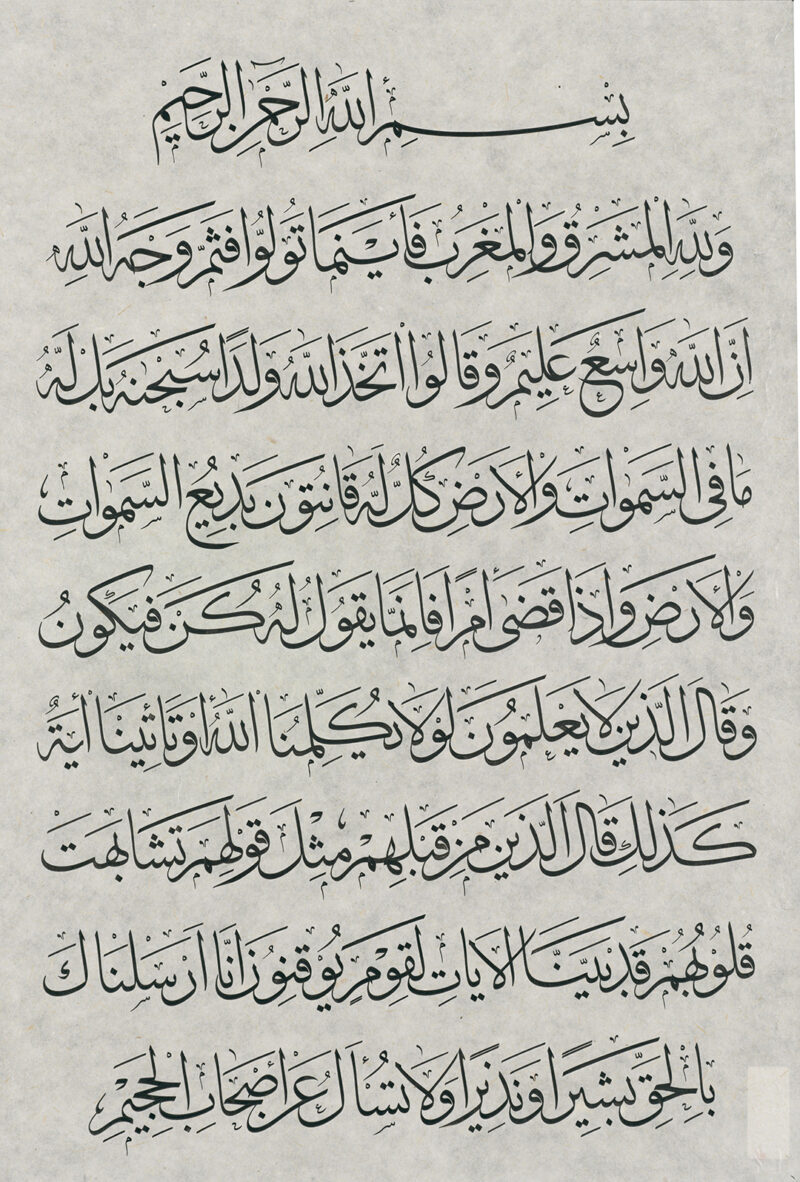 بِسْمِ اللهِ الرَّحْمٰنِ الرَّحِيمِ
وَلِلّٰهِ الْمَشْرِقُ وَالْمَغْرِبُ فَأَيْنَمَا تُوَلُّوا فَثَمَّ وَجْهُ اللهِ
اِنَّ اللهَ وَاسِعٌ عَلِيمٌ وَقَالُوا اتَّخَذَ اللهُ وَلَدًا سُبْحٰنَهُ بَلْ لَهُ
مَا فِي السَّمٰوَاتِ وَالْاَرْضِ كُلٌّ لَهُ قَانِتُونَ بَدِيعُ السَّمٰوَاتِ
وَالْاَرْضِ وَاِذَا قَضٰى أَمْرًا فَاِنَّمَا يَقُولُ لَهُ كُنْ فَيَكُونُ
وَقَالَ الَّذِينَ لَا يَعْلَمُونَ لَوْلَا يُكَلِّمُنَا اللهُ أَوْ تَأْتِينَا اٰيَةٌ
كَذٰلِكَ قَالَ الَّذِينَ مِنْ قَبْلِهِمْ مِثْلَ قَوْلِهِمْ تَشَابَهَتْ
قُلُوبُهُمْ قَدْ بَيَّنَّا الْاٰيَاتِ لِقَوْمٍ يُوقِنُونَ اِنَّا اَرْسَلْنَاكَ
بِالْحَقِّ بَشِيرًا وَنَذِيرًا وَلَا تُسْأَلُ عَنْ أَصْحَابِ الْجَحِيمِ